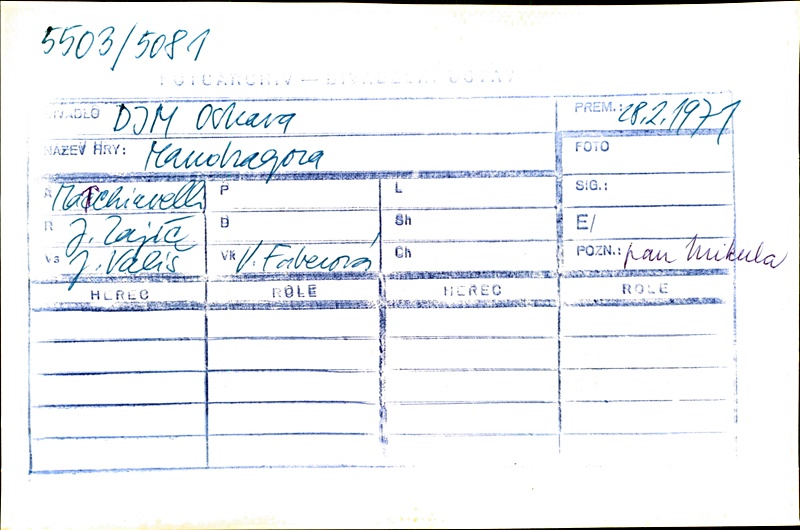 5503/5081
FOTOARCHIV — DIVADELNÍ ÚSTAV
DIVADLO DJM Oskava PREM.: 28.2.1971
NÁZEV HRY: Mandragora FOTO
A Matchiavelli P L SIG.:
R J. Zajíc B Sh E/
Vs J. Vališ Vk V. Faberová Ch POZN.: pan Mikula
HEREC ROLE HEREC ROLE